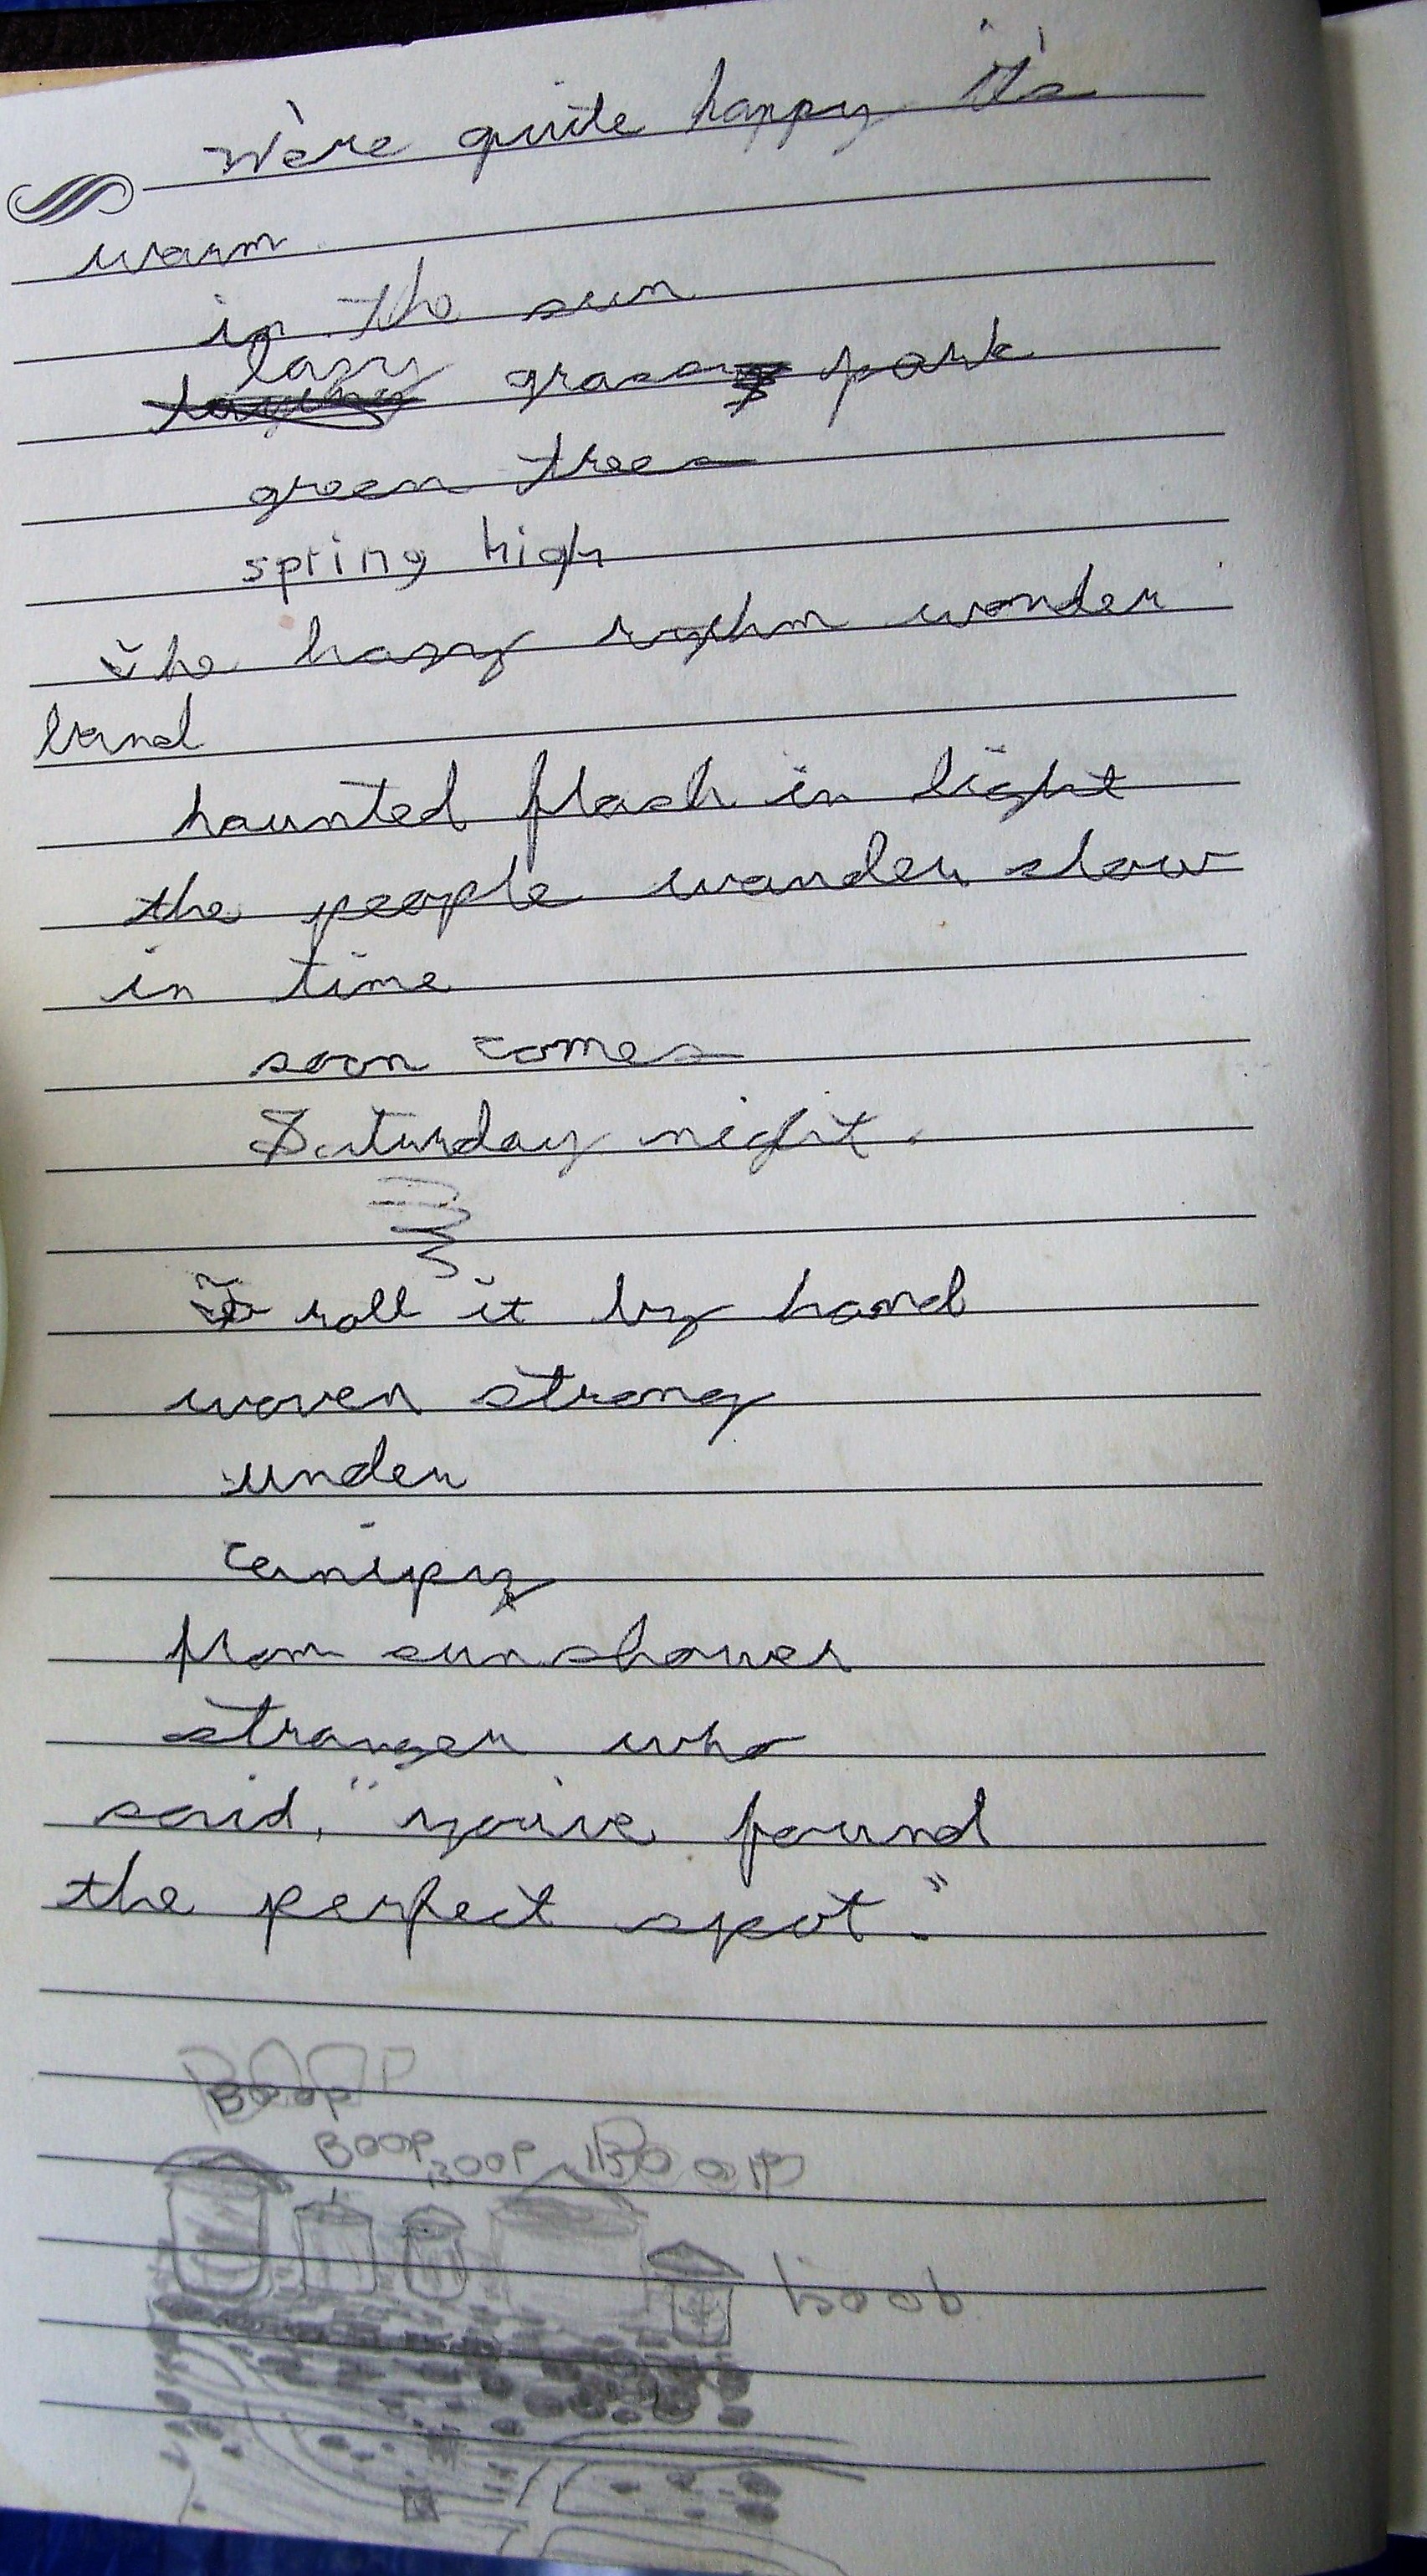 We're quite happy it's
warm
in the sun
lazy
grassy park
green trees
spring high
the hazy rythm wonder
land
haunted flash in light
the people wander slow
in time
soon comes
Saturday night.
I roll it by hand
woven strong
under
canipy
from sunshower
stranger who
said, "you've found
the perfect spot."
BOOP
Boop
Boop
BOOP
BOOP
boob